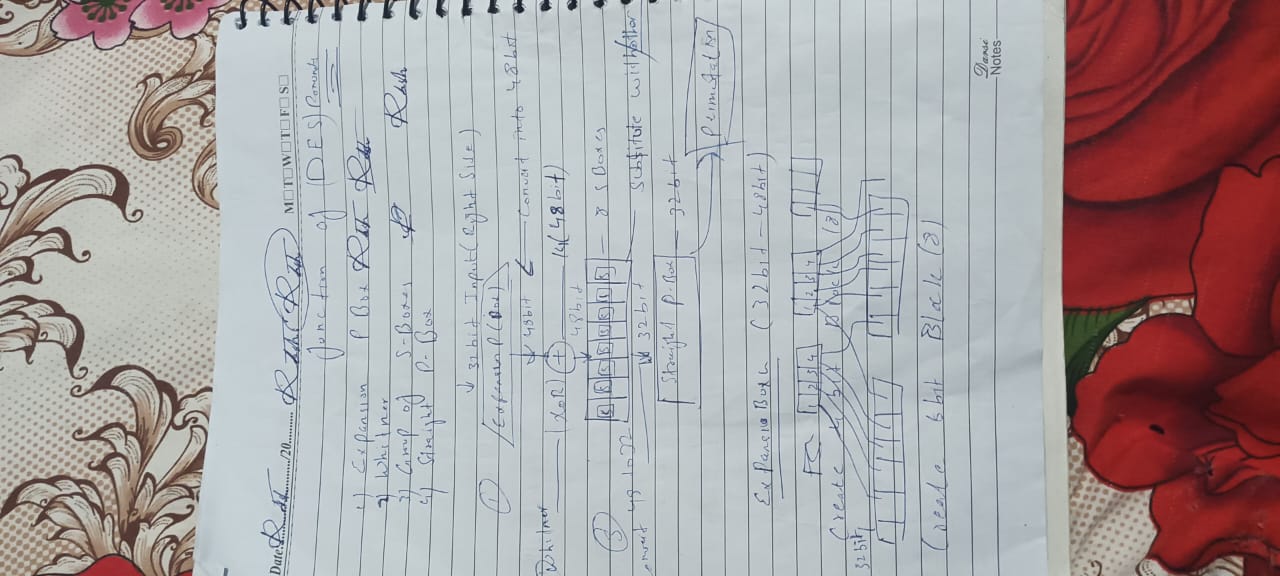 Date: /20 M T W T F S
Junction of (DES) Rounds
1) Expansion P Box
2) Whitner
3) Group of S-Boxes
4) Straight P-Box
↓ 32 bit Input (Right Side)
① Expansion P (Box)
↓ 48bit ← Convert into 48bit
Whitner (XOR) + K (48 bit)
48 bit
③ S S S S S S S S — 8 S Boxes
48 to 32 ↓ 32 bit Substitute with other
Straight P-Box — 32 bit
Permutation
(32 bit - 48 bit)
1 2 3 4 1 2 3 4
Create 4 bit Block (8)
32 bit
Create 6 bit Block (8)
Darsi
Notes